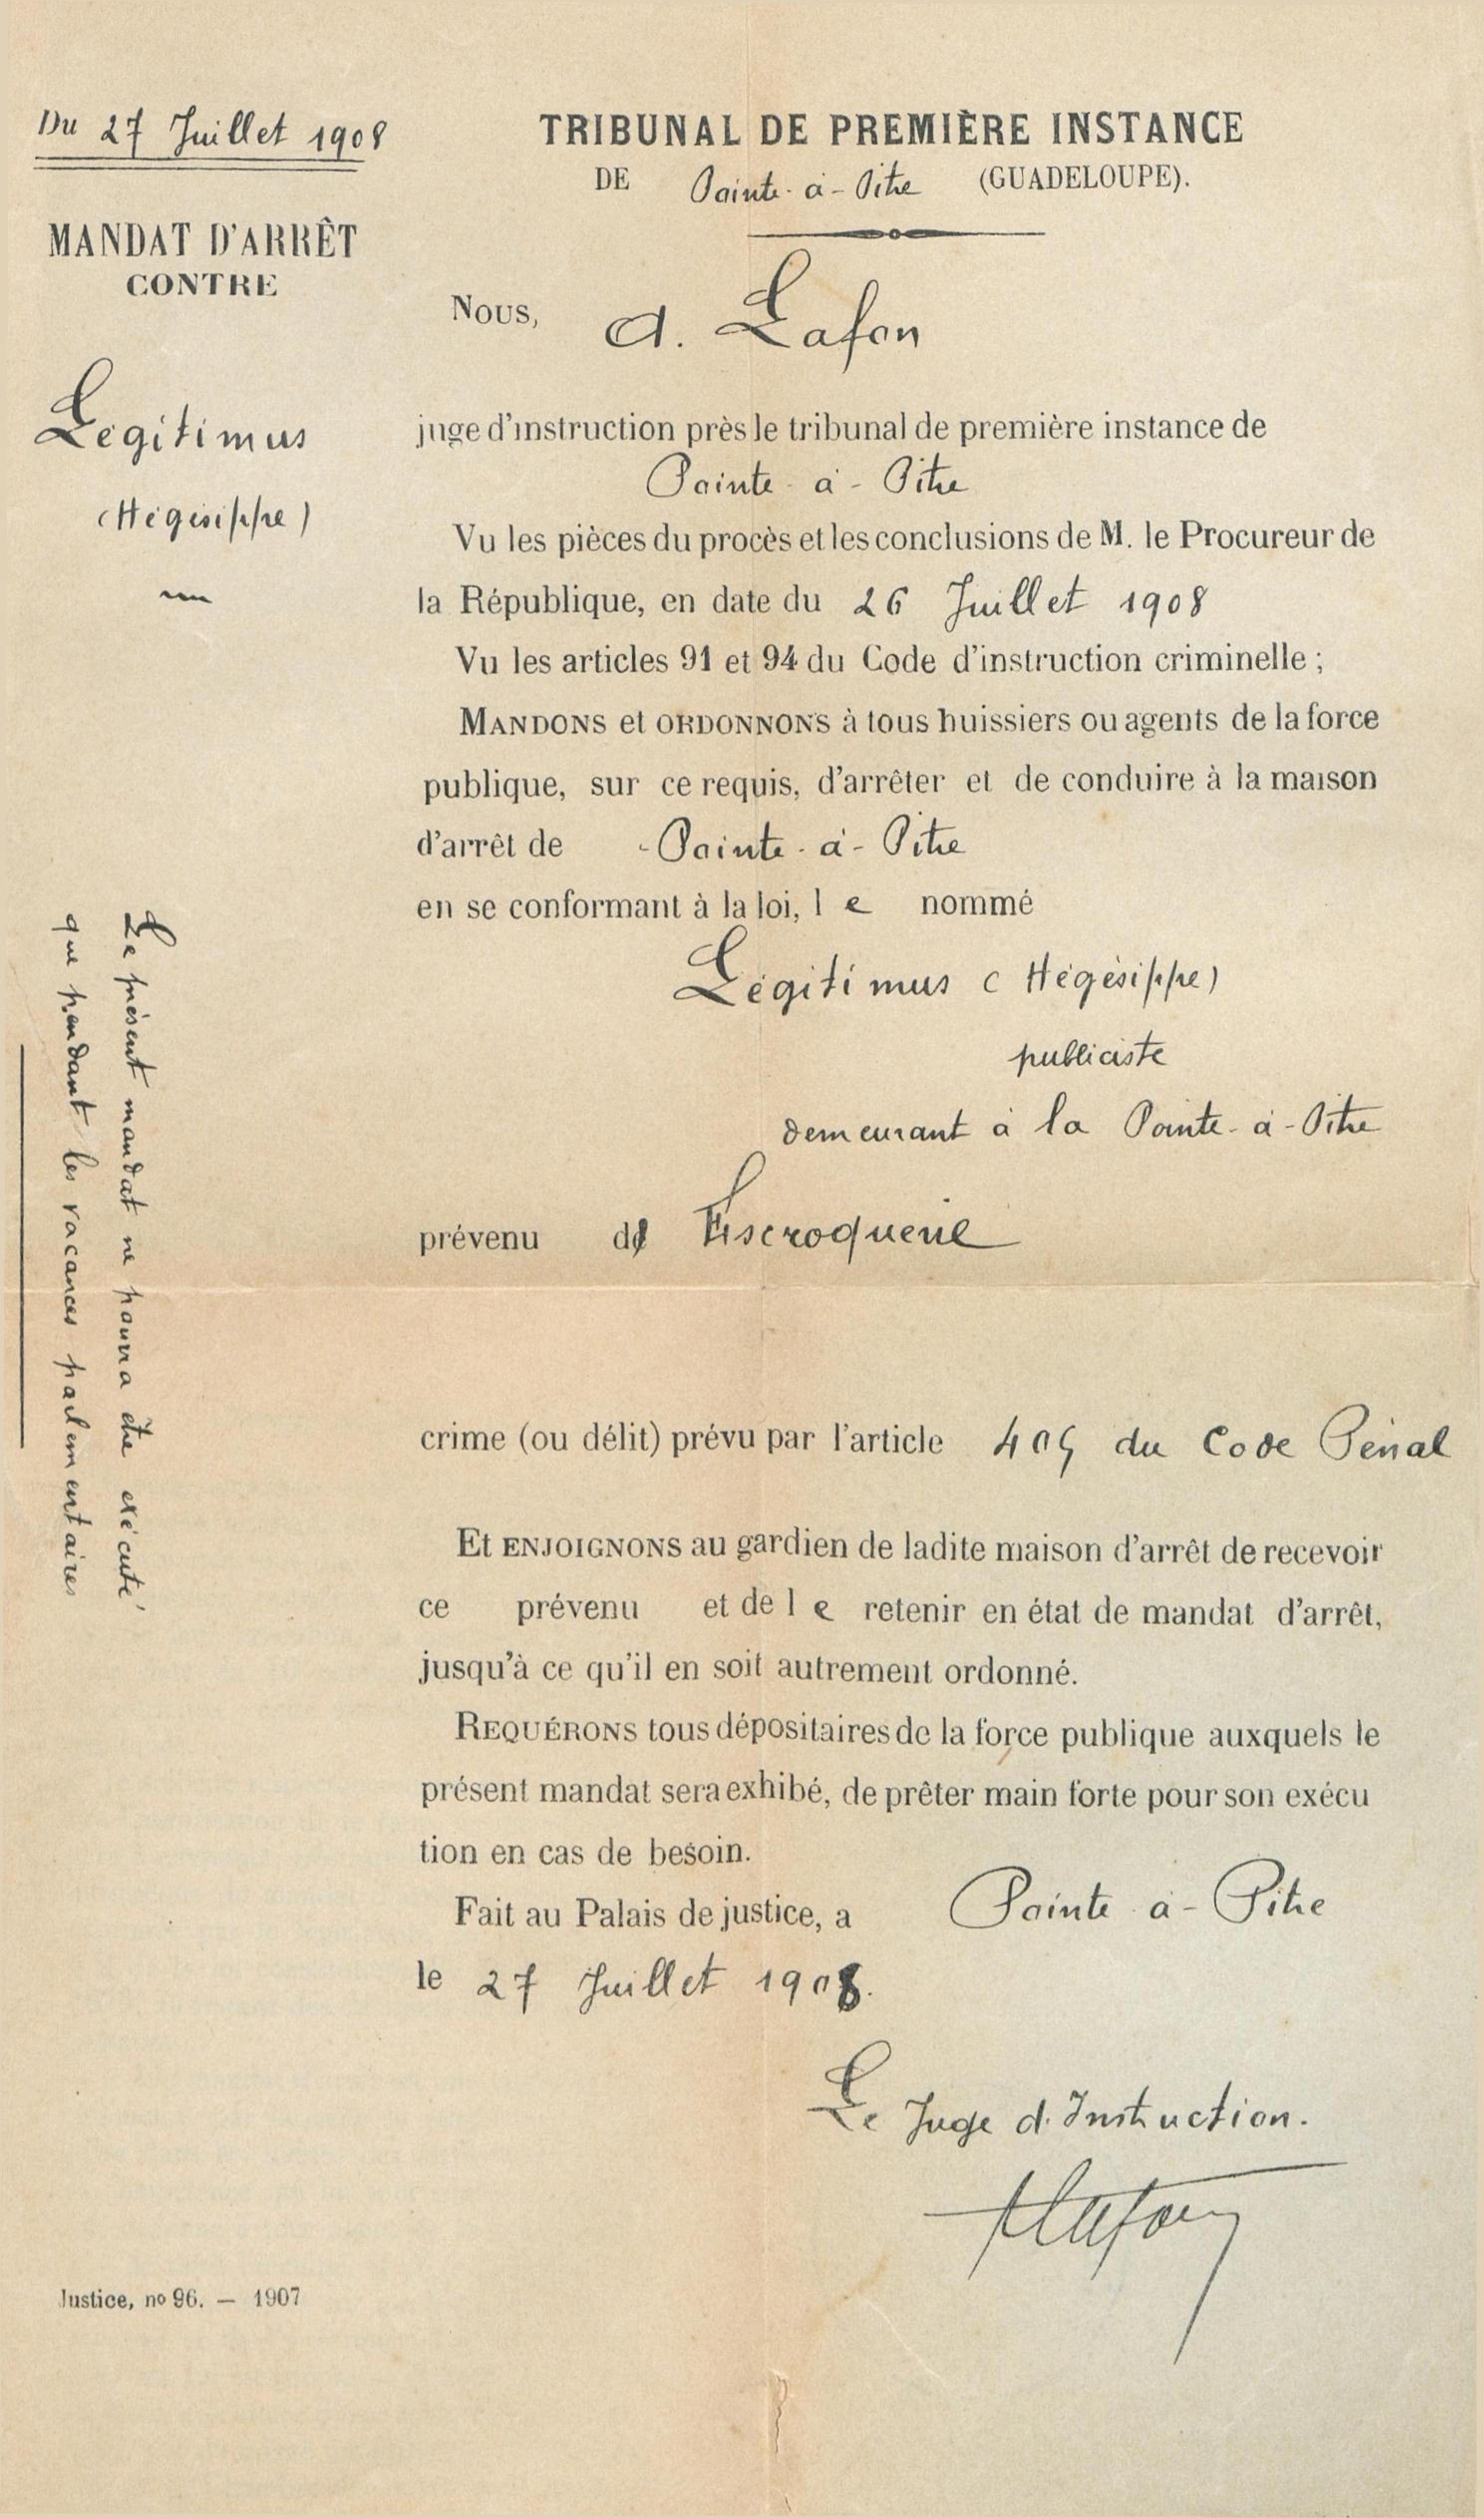 Du 27 Juillet 1908
MANDAT D'ARRÊT
CONTRE
Légitimus
(Hégésippe)
Le présent mandat ne pourra être exécuté
que pendant les vacances parlementaires
TRIBUNAL DE PREMIÈRE INSTANCE
DE Pointe-à-Pitre (GUADELOUPE).
Nous, A. Lafon
juge d'instruction près le tribunal de première instance de
Pointe-à-Pitre
Vu les pièces du procès et les conclusions de M. le Procureur de
la République, en date du 26 Juillet 1908
Vu les articles 91 et 94 du Code d'instruction criminelle ;
MANDONS et ORDONNONS à tous huissiers ou agents de la force
publique, sur ce requis, d'arrêter et de conduire à la maison
d'arrêt de Pointe-à-Pitre
en se conformant à la loi, l e nommé
Légitimus (Hégésippe)
publiciste
demeurant à la Pointe-à-Pitre
prévenu d' Escroquerie
crime (ou délit) prévu par l'article 405 du Code Pénal
Et ENJOIGNONS au gardien de ladite maison d'arrêt de recevoir
ce prévenu et de l e retenir en état de mandat d'arrêt,
jusqu'à ce qu'il en soit autrement ordonné.
REQUÉRONS tous dépositaires de la force publique auxquels le
présent mandat sera exhibé, de prêter main forte pour son exécu
tion en cas de besoin.
Fait au Palais de justice, a Pointe à-Pitre
le 27 Juillet 1908.
Le Juge d'Instruction.
ALafon
Justice, no 96. — 1907